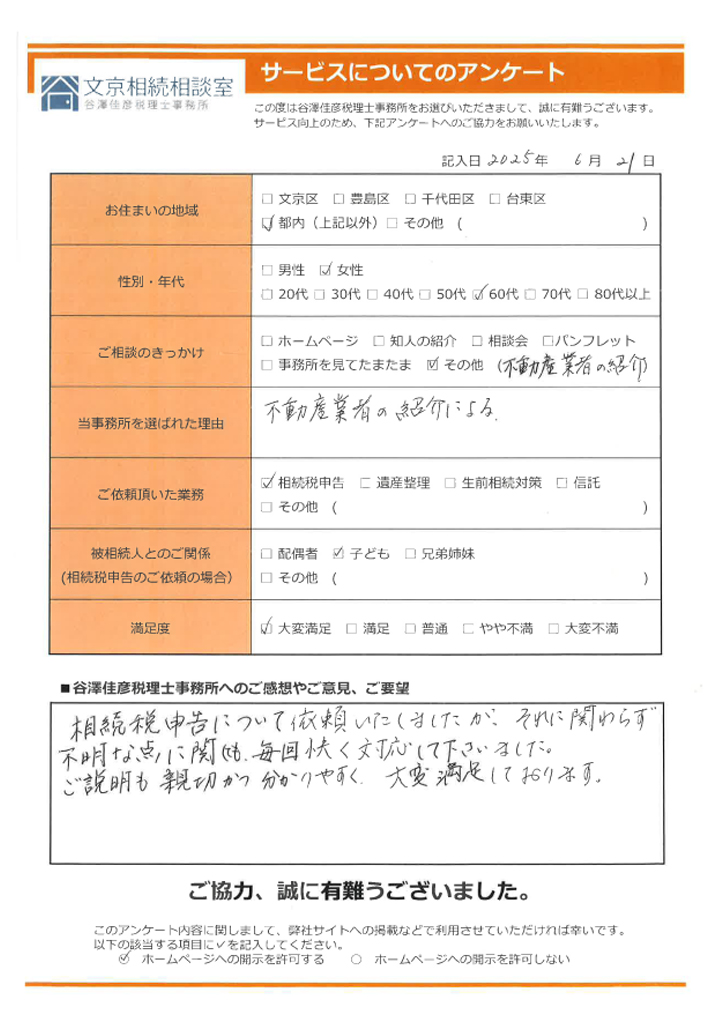 文京相続相談室
谷澤佳彦税理士事務所
サービスについてのアンケート
この度は谷澤佳彦税理士事務所をお選びいただきまして、誠に有難うございます。
サービス向上のため、下記アンケートへのご協力をお願いいたします。
記入日 2025 年 6 月 21 日
お住まいの地域
□ 文京区 □ 豊島区 □ 千代田区 □ 台東区
☑ 都内（上記以外）□ その他 ( )
性別・年代
□ 男性 ☑ 女性
□ 20代 □ 30代 □ 40代 □ 50代 ☑ 60代 □ 70代 □ 80代以上
ご相談のきっかけ
□ ホームページ □ 知人の紹介 □ 相談会 □パンフレット
□ 事務所を見てたまたま ☑ その他 (不動産業者の紹介)
当事務所を選ばれた理由
不動産業者の紹介による.
ご依頼頂いた業務
☑ 相続税申告 □ 遺産整理 □ 生前相続対策 □ 信託
□ その他 ( )
被相続人とのご関係
(相続税申告のご依頼の場合)
□ 配偶者 ☑ 子ども □ 兄弟姉妹
□ その他 ( )
満足度
☑ 大変満足 □ 満足 □ 普通 □ やや不満 □ 大変不満
■谷澤佳彦税理士事務所へのご感想やご意見、ご要望
相続税申告について依頼いたしましたが、それに関わらず
不明な点に関しても、毎回快く対応して下さいました。
ご説明も親切かつ分かりやすく、大変満足しております。
ご協力、誠に有難うございました。
このアンケート内容に関しまして、弊社サイトへの掲載などで利用させていただければ幸いです。
以下の該当する項目に✓を記入してください。
☑ ホームページへの開示を許可する ○ ホームページへの開示を許可しない